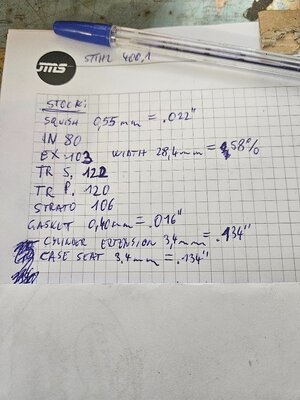 JMS
STIHL 400.1
STOCK:
SQUISH 0,55mm = .022"
IN 80
EX 103 WIDTH 28,4mm = 58%
TR S. 122
TR P. 120
STRATO 106
GASKET 0,40mm = .016"
CYLINDER EXTENSION 3,4mm = .134"
CASE SEAT 3.4mm = .134"